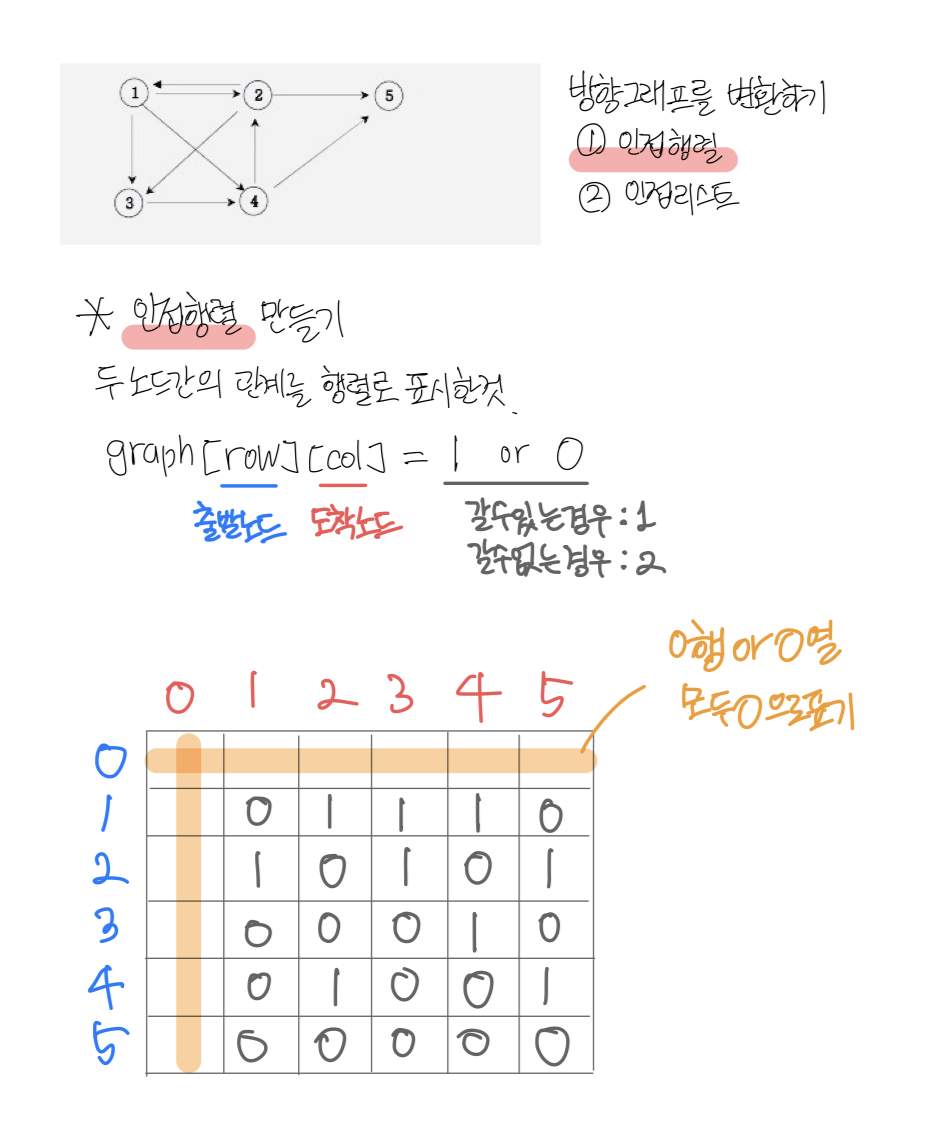 1 2 5
3 4
방향그래프를 변환하기
① 인접행렬
② 인접리스트
* 인접행렬 만들기
두 노드간의 관계를 행렬로 표시한것.
graph[row][col] = 1 or 0
출발노드 도착노드 갈수있는경우 : 1
갈수없는경우 : 2
0행 or 0열
모두 0으로표기
0 1 2 3 4 5
0
1 0 1 1 1 0
2 1 0 1 0 1
3 0 0 0 1 0
4 0 1 0 0 1
5 0 0 0 0 0